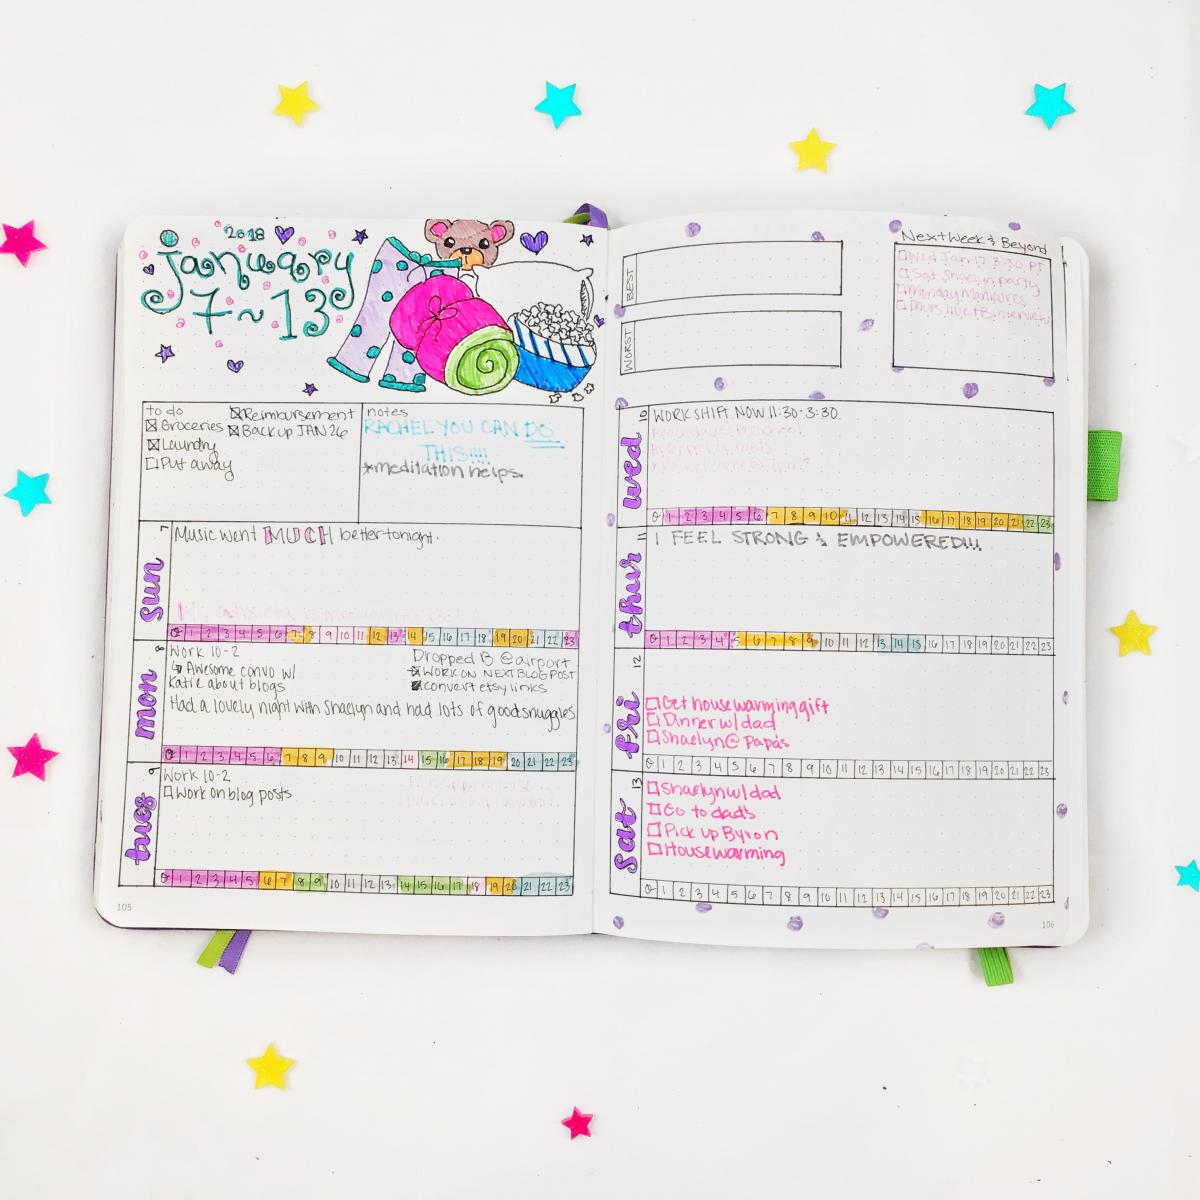 2018
january
7~13
to do
Reimbursement
Groceries
Backup JAN 26
Laundry
Put away
notes
RACHEL YOU CAN DO
THIS!!!!
*meditation helps.
7
sun
Music went MUCH better tonight.
0 1 2 3 4 5 6 7 8 9 10 11 12 13 14 15 16 17 18 19 20 21 22 23
8
mon
Work 10-2
Awesome convo w/
Katie about blogs
Dropped B @ airport
WORK ON NEXT BLOG POST
convert etsy links
Had a lovely night with Shaelyn and had lots of good snuggles
0 1 2 3 4 5 6 7 8 9 10 11 12 13 14 15 16 17 18 19 20 21 22 23
9
tues
Work 10-2
Work on blog posts
0 1 2 3 4 5 6 7 8 9 10 11 12 13 14 15 16 17 18 19 20 21 22 23
105
BEST
WORST
Next Week & Beyond
Wed Jan 17 3:30 PT
Sat Shaelyn party
Monday Manicures
Thurs live FB interview
10
wed
WORK SHIFT NOW 11:30-3:30
0 1 2 3 4 5 6 7 8 9 10 11 12 13 14 15 16 17 18 19 20 21 22 23
11
thur
I FEEL STRONG & EMPOWERED!!!
0 1 2 3 4 5 6 7 8 9 10 11 12 13 14 15 16 17 18 19 20 21 22 23
12
fri
Get housewarming gift
Dinner w/ dad
Shaelyn @ Papa's
0 1 2 3 4 5 6 7 8 9 10 11 12 13 14 15 16 17 18 19 20 21 22 23
13
sat
Shaelyn w/ dad
Go to dad's
Pick up Byron
Housewarming
0 1 2 3 4 5 6 7 8 9 10 11 12 13 14 15 16 17 18 19 20 21 22 23
106